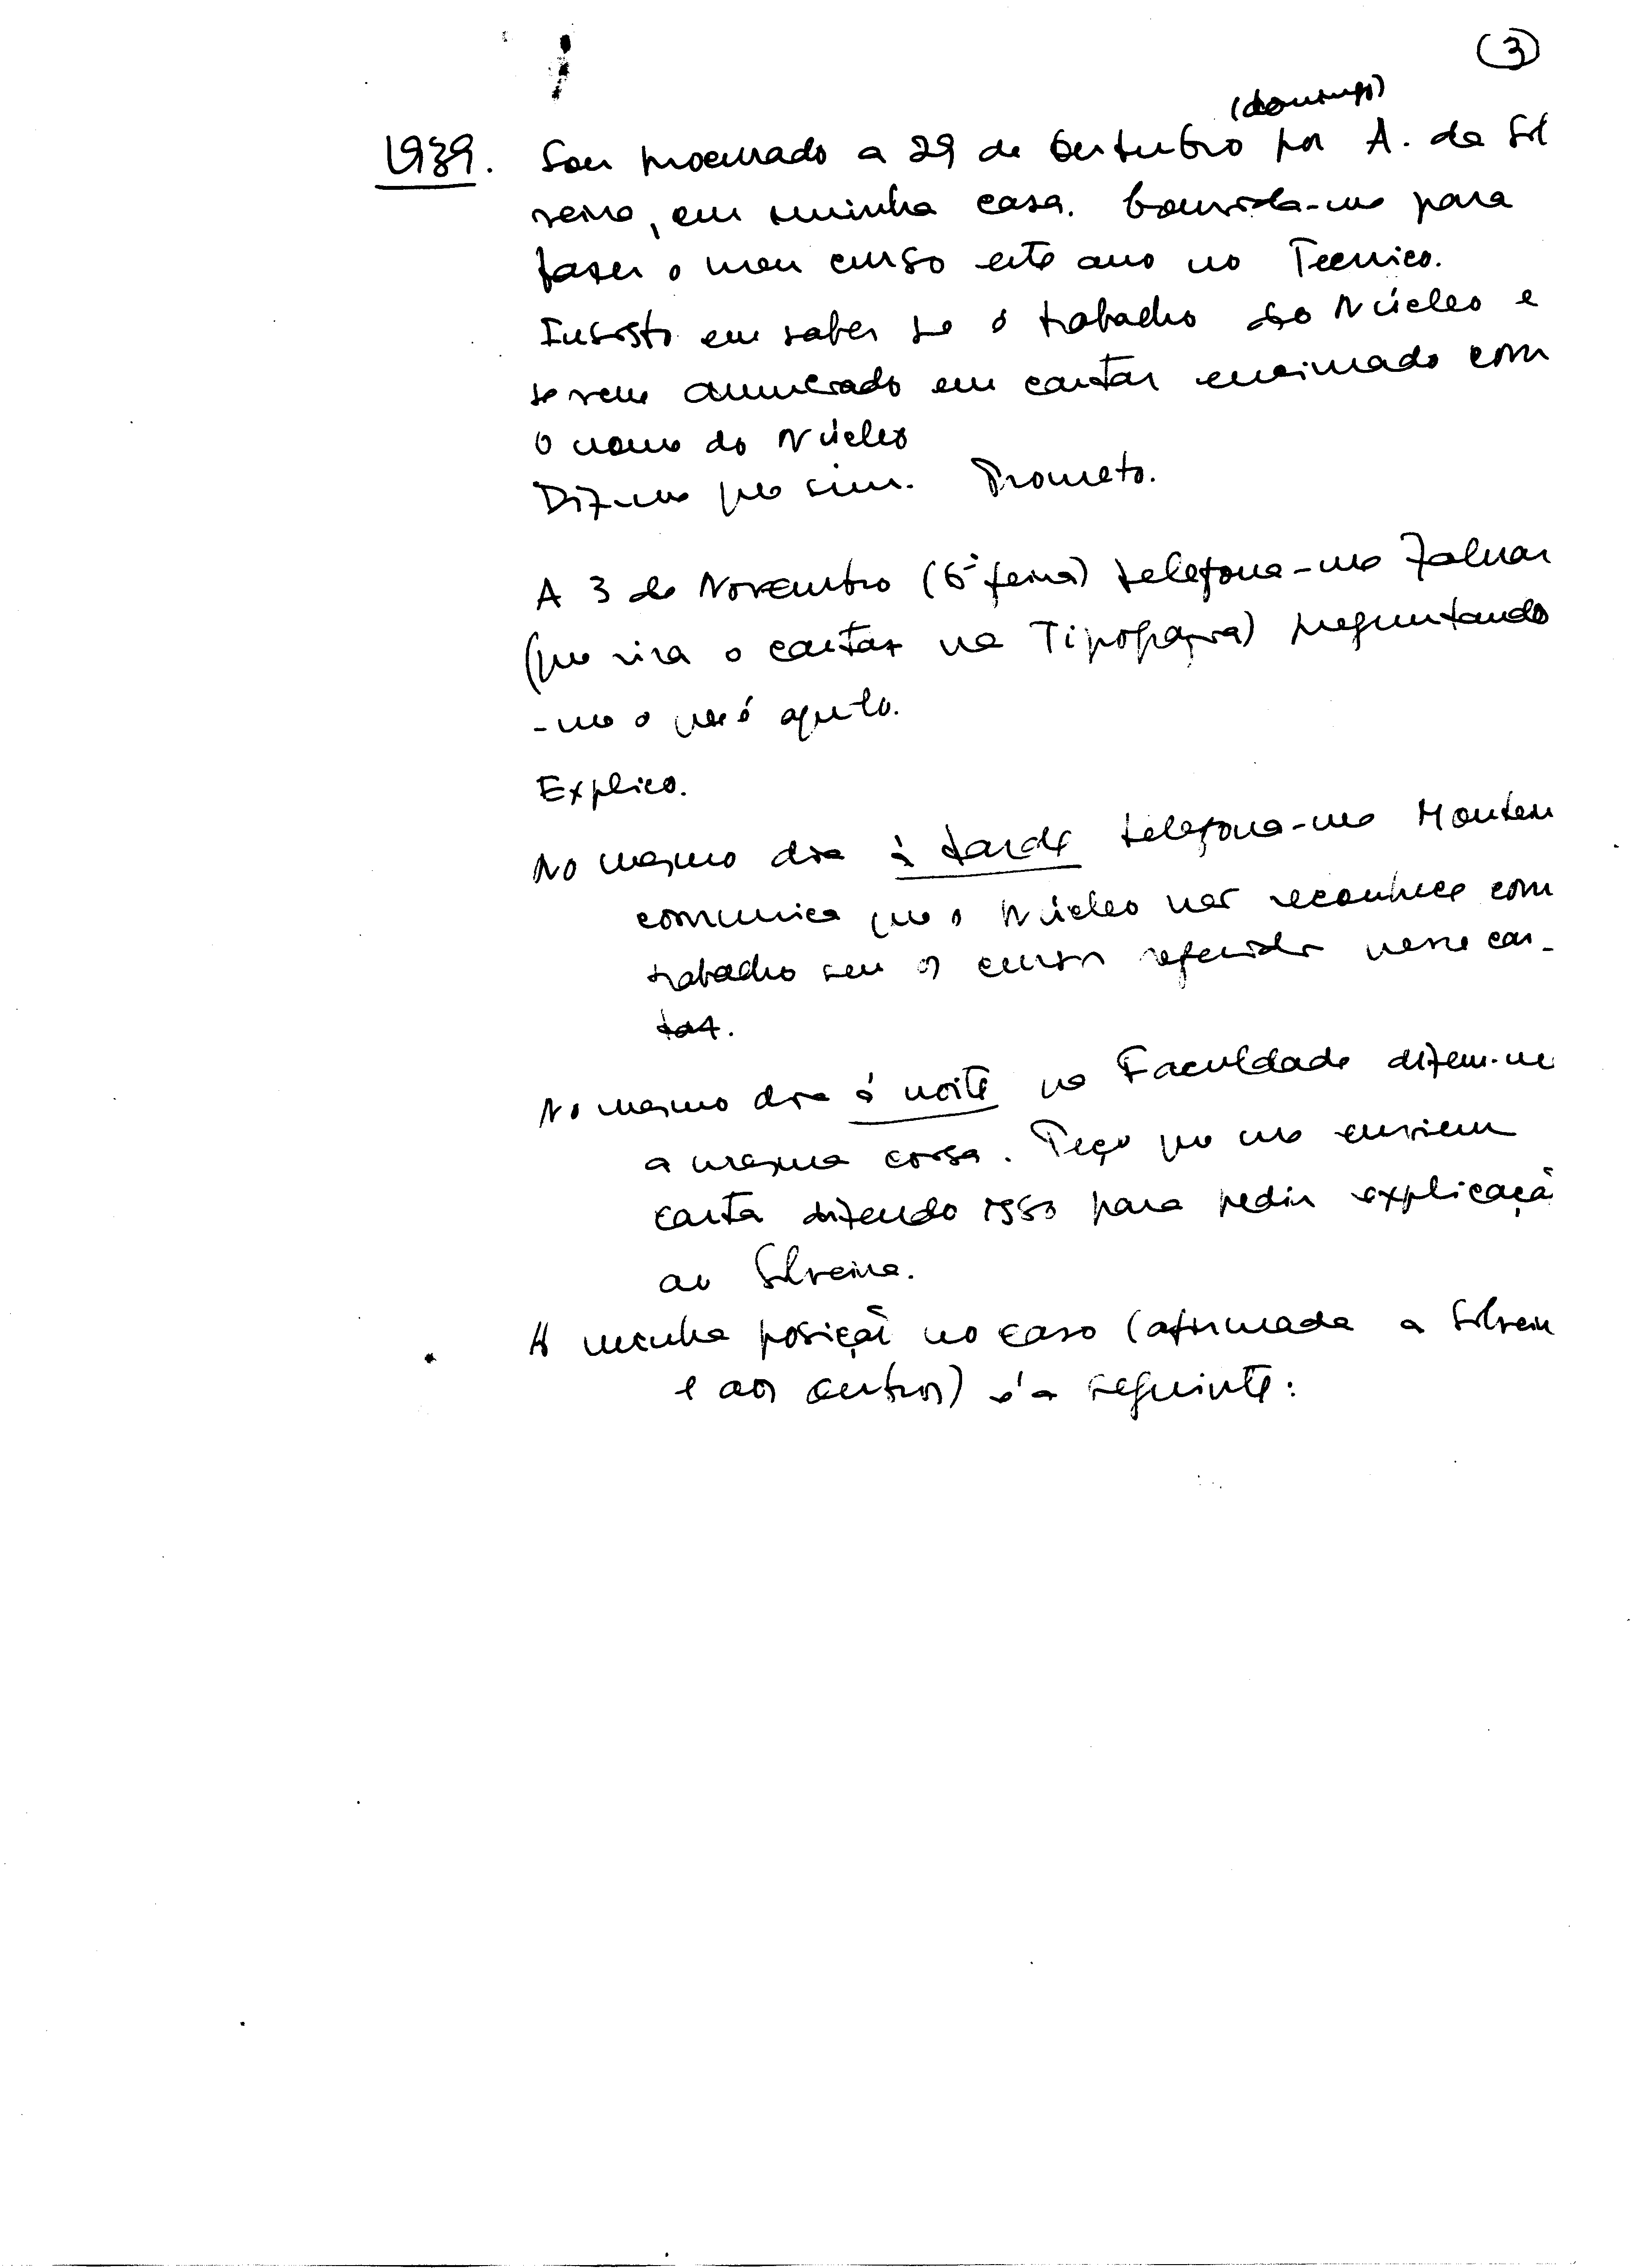 (3)
(domingo)
1939. Sou procurado a 29 de Outubro por A. da Sil
veira, em minha casa. Convida-me para
fazer o meu curso este ano no Tecnico.
Insisto em saber se é trabalho do Núcleo e
se vem anunciado em cartaz encimado com
o nome do Núcleo
Diz-me que sim. Prometo.
A 3 de Novembro (6ª feira) telefona-me Zaluar
(que vira o cartaz na Tipografia) preguntando
-me o que é aquilo.
Explico.
No mesmo dia à tarde telefona-me Monteir
comunica que o Núcleo não reconhece com
trabalho seu os cursos referidos nesse car-
taz.
No mesmo dia à noite na Faculdade dizem-me
a mesma coisa. Peço que me enviem
carta dizendo isso para pedir explicaçã
ao Silveira.
A minha posição no caso (afirmada a Silveir
e aos outros) é a seguinte: